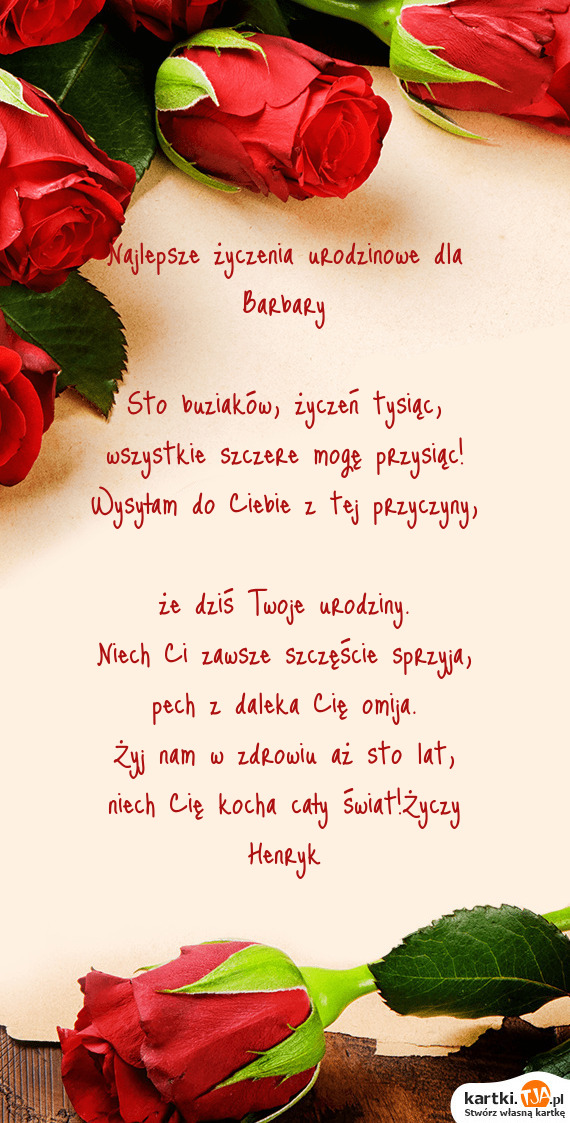 Najlepsze życzenia urodzinowe dla
Barbary
Sto buziaków, życzeń tysiąc,
wszystkie szczere mogę przysiąc!
Wysyłam do Ciebie z tej przyczyny,
że dziś Twoje urodziny.
Niech Ci zawsze szczęście sprzyja,
pech z daleka Cię omija.
Żyj nam w zdrowiu aż sto lat,
niech Cię kocha cały świat!Życzy
Henryk
kartki.TJA.pl
Stwórz własną kartkę